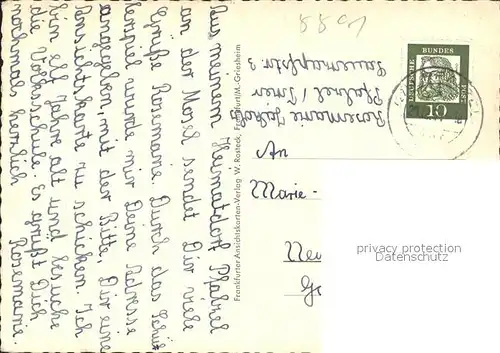 8891
Aus meinem Heimatdorf Pfalzel
an der Mosel sendet Dir viele
Grüße Rosemarie. Durch das Schul
ferspiel wurde mir Deine Adresse
angegeben, mit der Bitte, Dir eine
Ansichtskarte zu schicken. Ich
bin elf Jahre alt und besuche
die Volksschule. Es grüßt Dich
nochmals herzlich
Rosemarie.
Frankfurter Ansichtskarten-Verlag W. Rosteck, Frankfurt/M.-Griesheim
Rosemarie
Pfalzel / Trier
3
DEUTSCHE BUNDES
10
An
Marie-
Neu
privacy protection
Datenschutz